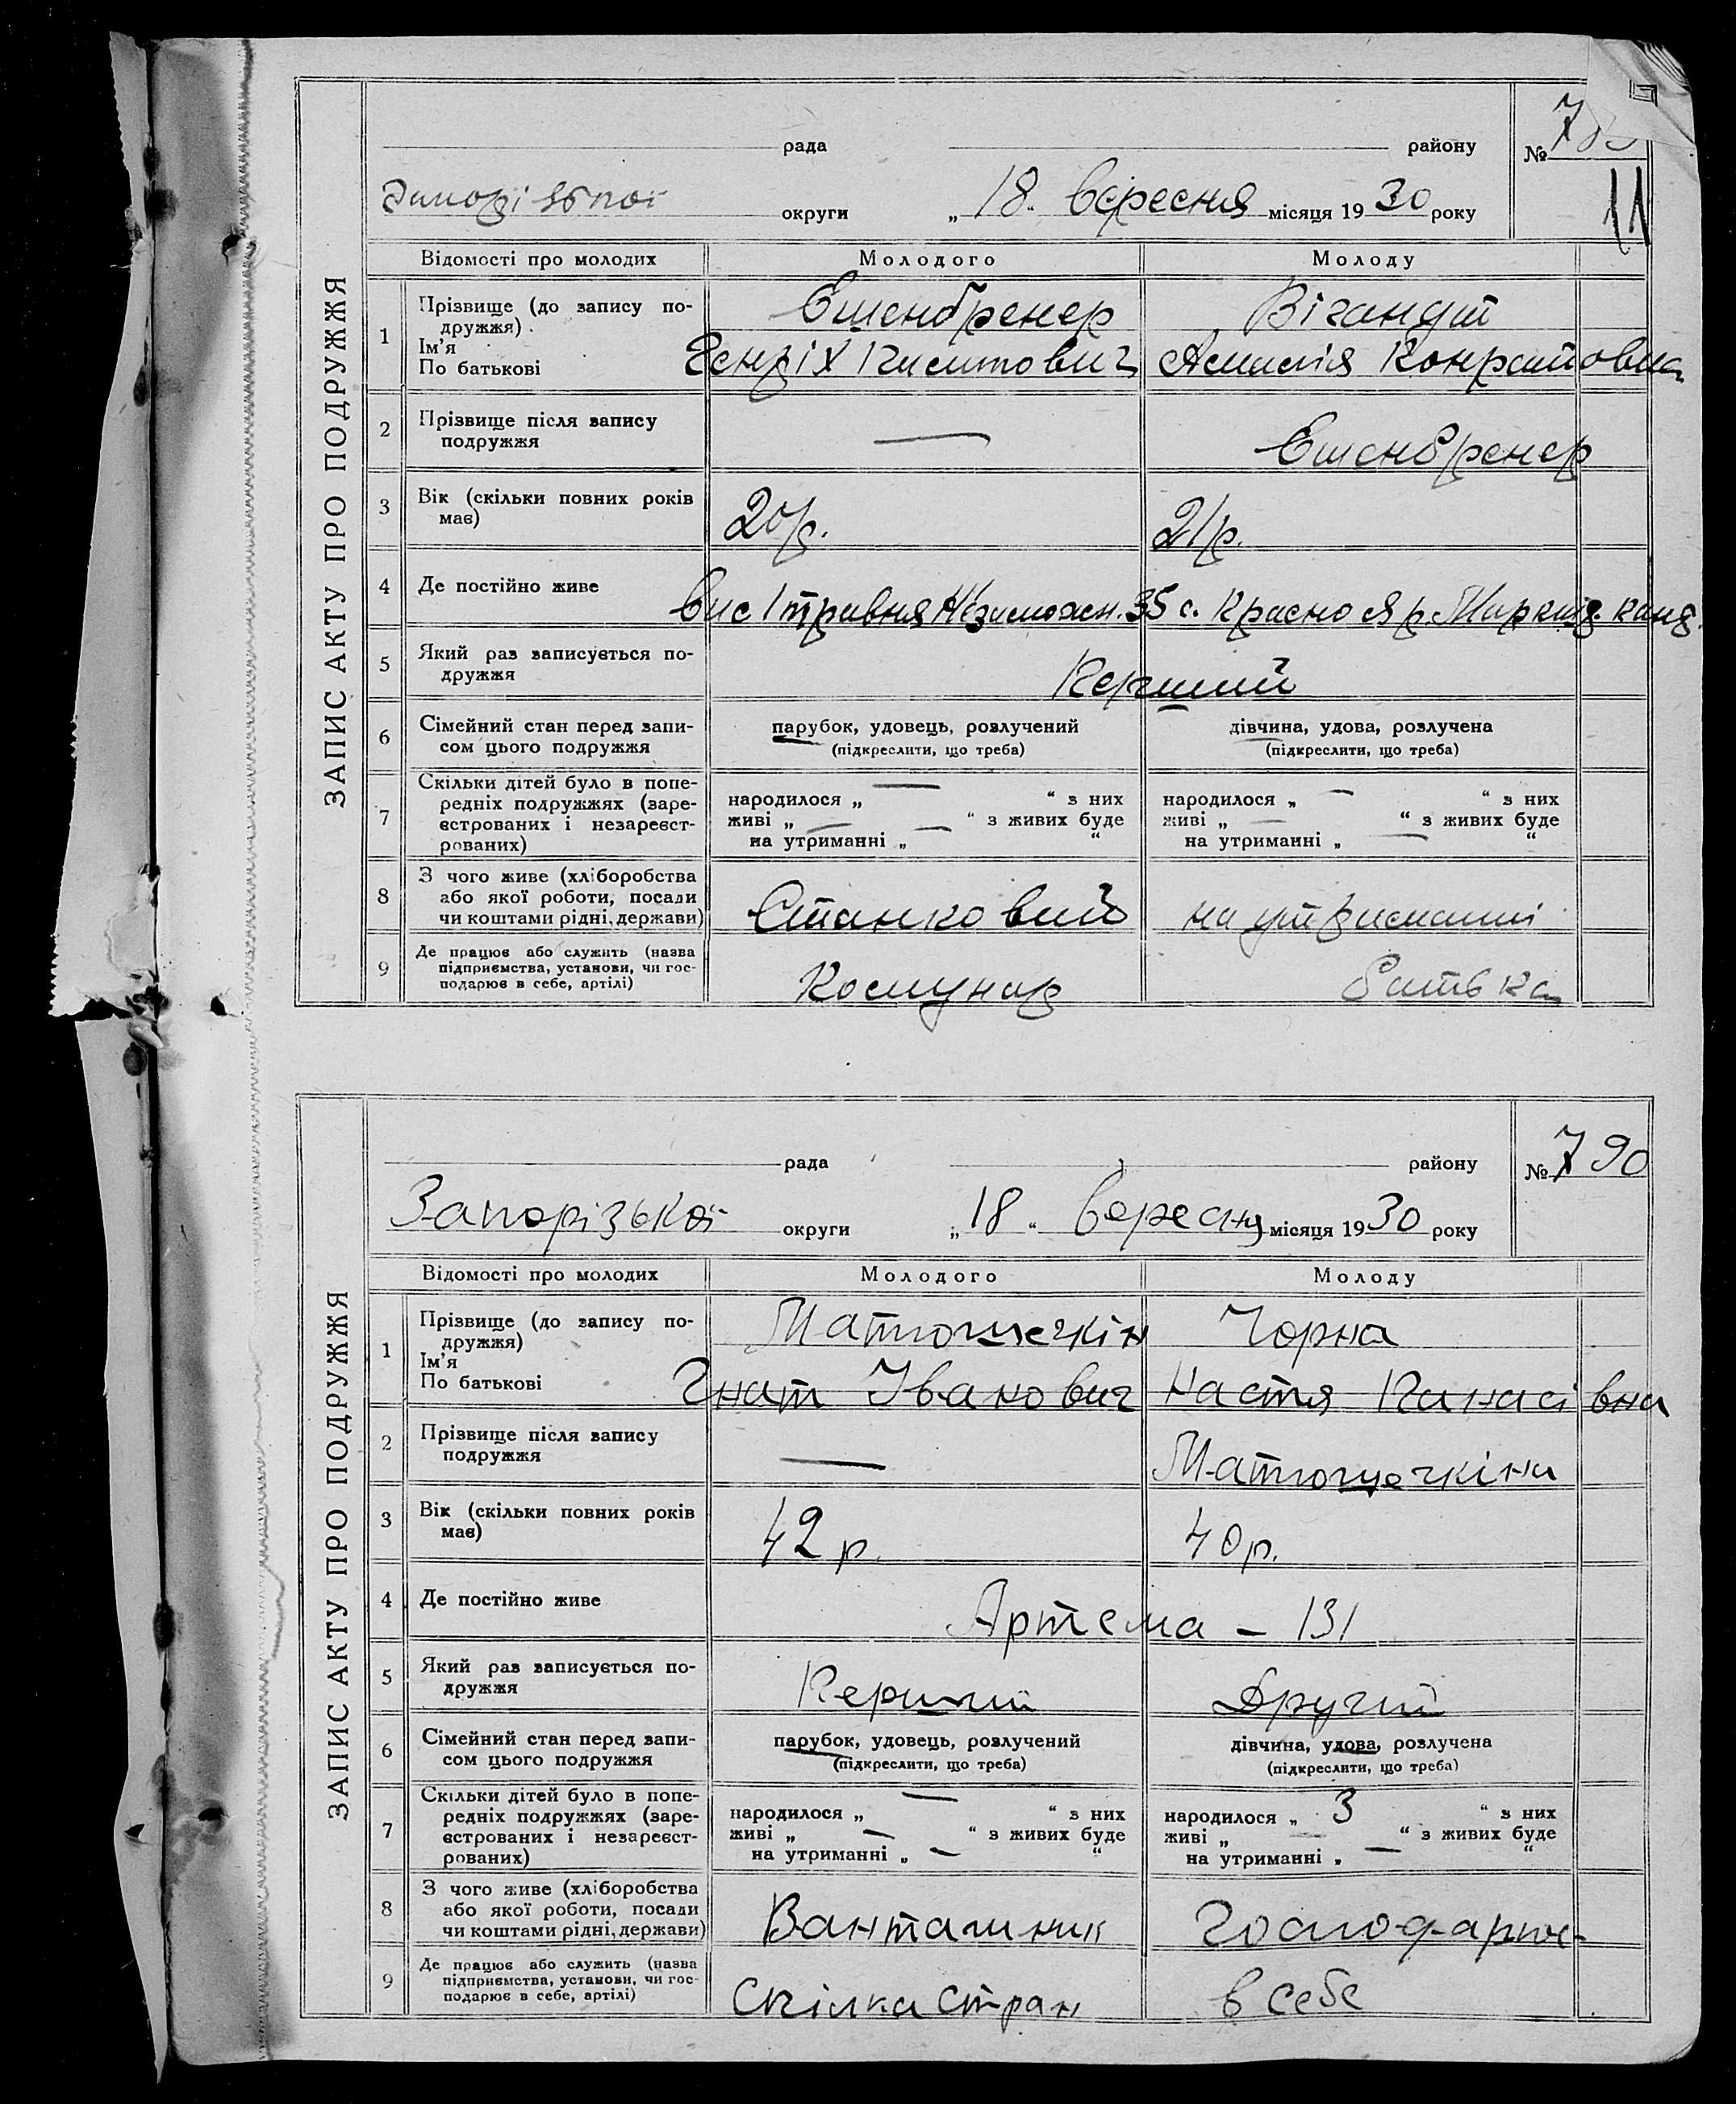 ЗАПИС АКТУ ПРО ПОДРУЖЖЯ
рада району №
округи „ 18 “ вересня місяця 1930 року
11
Відомості про молодих Молодого Молоду
1 Прізвище (до запису подружжя) Ешенбренер Вігандт
Ім'я
По батькові Генріх Амалія
2 Прізвище після запису подружжя — Ешенбренер
3 Вік (скільки повних років має) 20 р. 21 р.
4 Де постійно живе 1 травня 35 с. Красно
5 Який раз записується подружжя Перший
6 Сімейний стан перед записом цього подружжя парубок, удовець, розлучений дівчина, удова, розлучена
(підкреслити, що треба) (підкреслити, що треба)
7 Скільки дітей було в попередніх подружжях (зареєстрованих і незареєстрованих)
народилося „ — “ з них народилося „ — “ з них
живі „ — “ з живих буде живі „ — “ з живих буде
на утриманні „ — “ на утриманні „ — “
8 З чого живе (хліборобства або якої роботи, посади чи коштами рідні, держави) Станковий на утриманні
9 Де працює або служить (назва підприємства, установи, чи господарює в себе, артілі) Комунар батька
ЗАПИС АКТУ ПРО ПОДРУЖЖЯ
рада району № 790
Запорізької округи „ 18 “ вересня місяця 1930 року
Відомості про молодих Молодого Молоду
1 Прізвище (до запису подружжя) Чорна
Ім'я
По батькові Гнат Іванович Настя Панасівна
2 Прізвище після запису подружжя —
3 Вік (скільки повних років має) 42 р. 40 р.
4 Де постійно живе Артема – 131
5 Який раз записується подружжя Перший Другий
6 Сімейний стан перед записом цього подружжя парубок, удовець, розлучений дівчина, удова, розлучена
(підкреслити, що треба) (підкреслити, що треба)
7 Скільки дітей було в попередніх подружжях (зареєстрованих і незареєстрованих)
народилося „ — “ з них народилося „ 3 “ з них
живі „ — “ з живих буде живі „ — “ з живих буде
на утриманні „ — “ на утриманні „ — “
8 З чого живе (хліборобства або якої роботи, посади чи коштами рідні, держави) Вантажник
9 Де працює або служить (назва підприємства, установи, чи господарює в себе, артілі) Спілка стран в себе